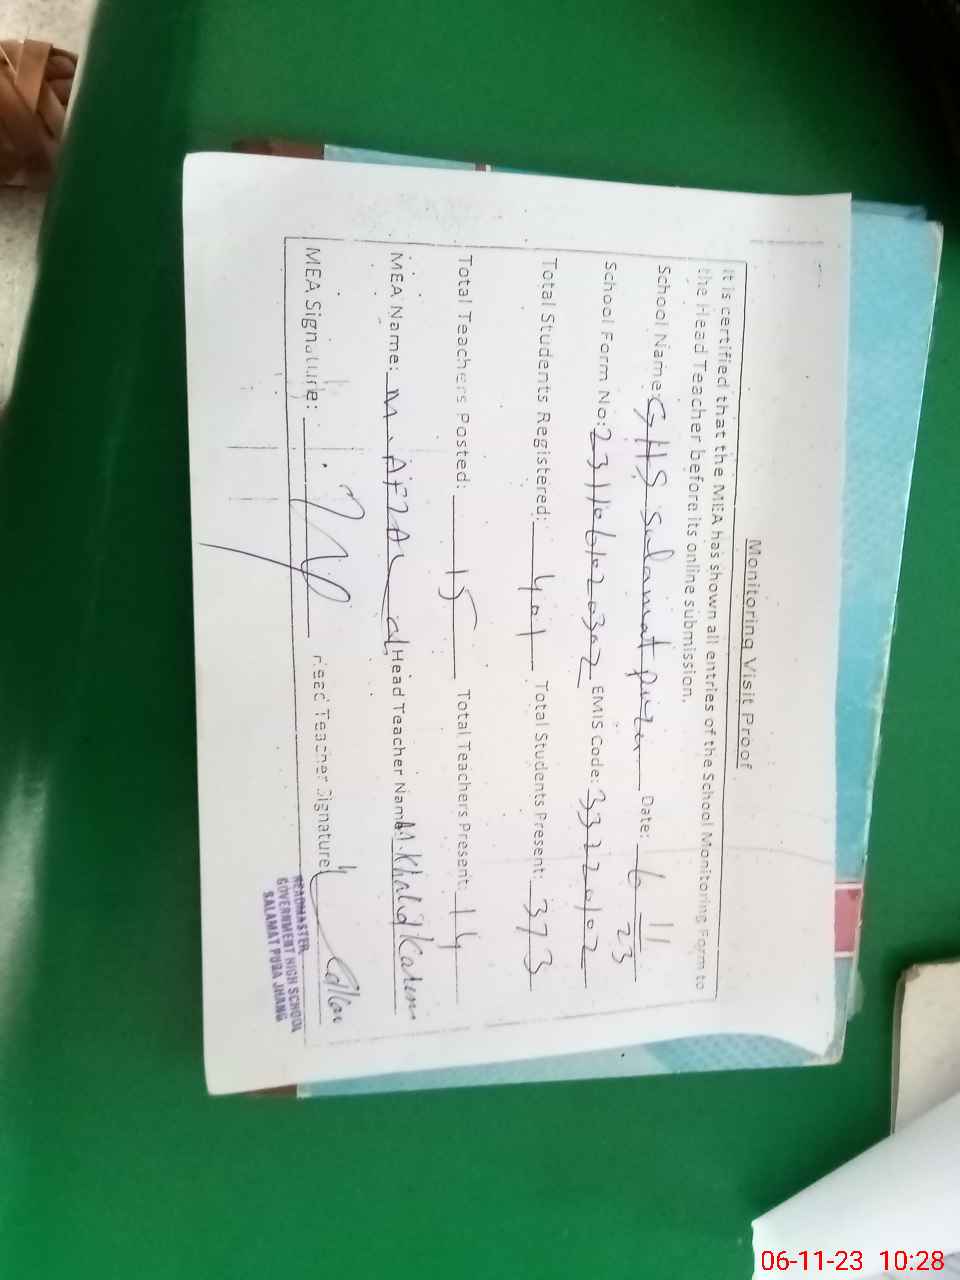 Monitoring Visit Proof
It is certified that the MEA has shown all entries of the School Monitoring Form to
the Head Teacher before its online submission.
School Name: GHS Salamat pura Date: 6 11/23
School Form No: 2311061020302 EMIS Code: 33220102
Total Students Registered: 401 Total Students Present: 373
Total Teachers Posted: 15 Total Teachers Present: 14
MEA Name: M. AFZAL Head Teacher Name: M. Khalid Karim
MEA Signature: Head Teacher Signature
HEADMASTER
GOVERNMENT HIGH SCHOOL
SALAMAT PURA JHANG
06-11-23 10:28